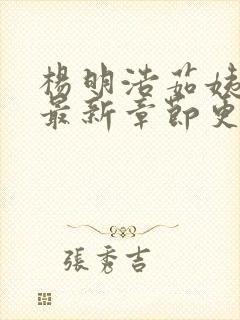 楊明浩茹姨
最新章節更
張秀吉